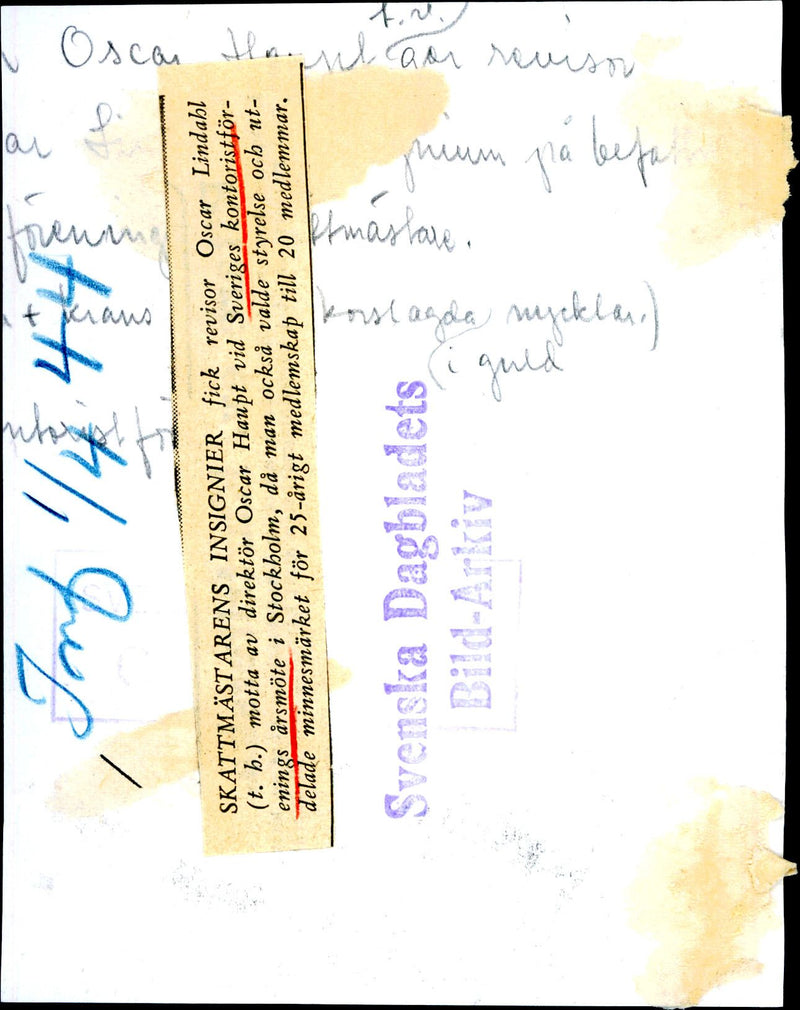 t.v.
Oscar Haupt ger revisor
ar
gnium på befa
förening
ttmästare.
+ krans
korslagda nycklar.)
(i guld
ntorist för
SKATTMÄSTARENS INSIGNIER fick revisor Oscar Lindahl
(t. h.) motta av direktör Oscar Haupt vid Sveriges kontoristför-
enings årsmöte i Stockholm, då man också valde styrelse och ut-
delade minnesmärket för 25-årigt medlemskap till 20 medlemmar.
1/4 44
Svenska Dagbladets
Bild-Arkiv